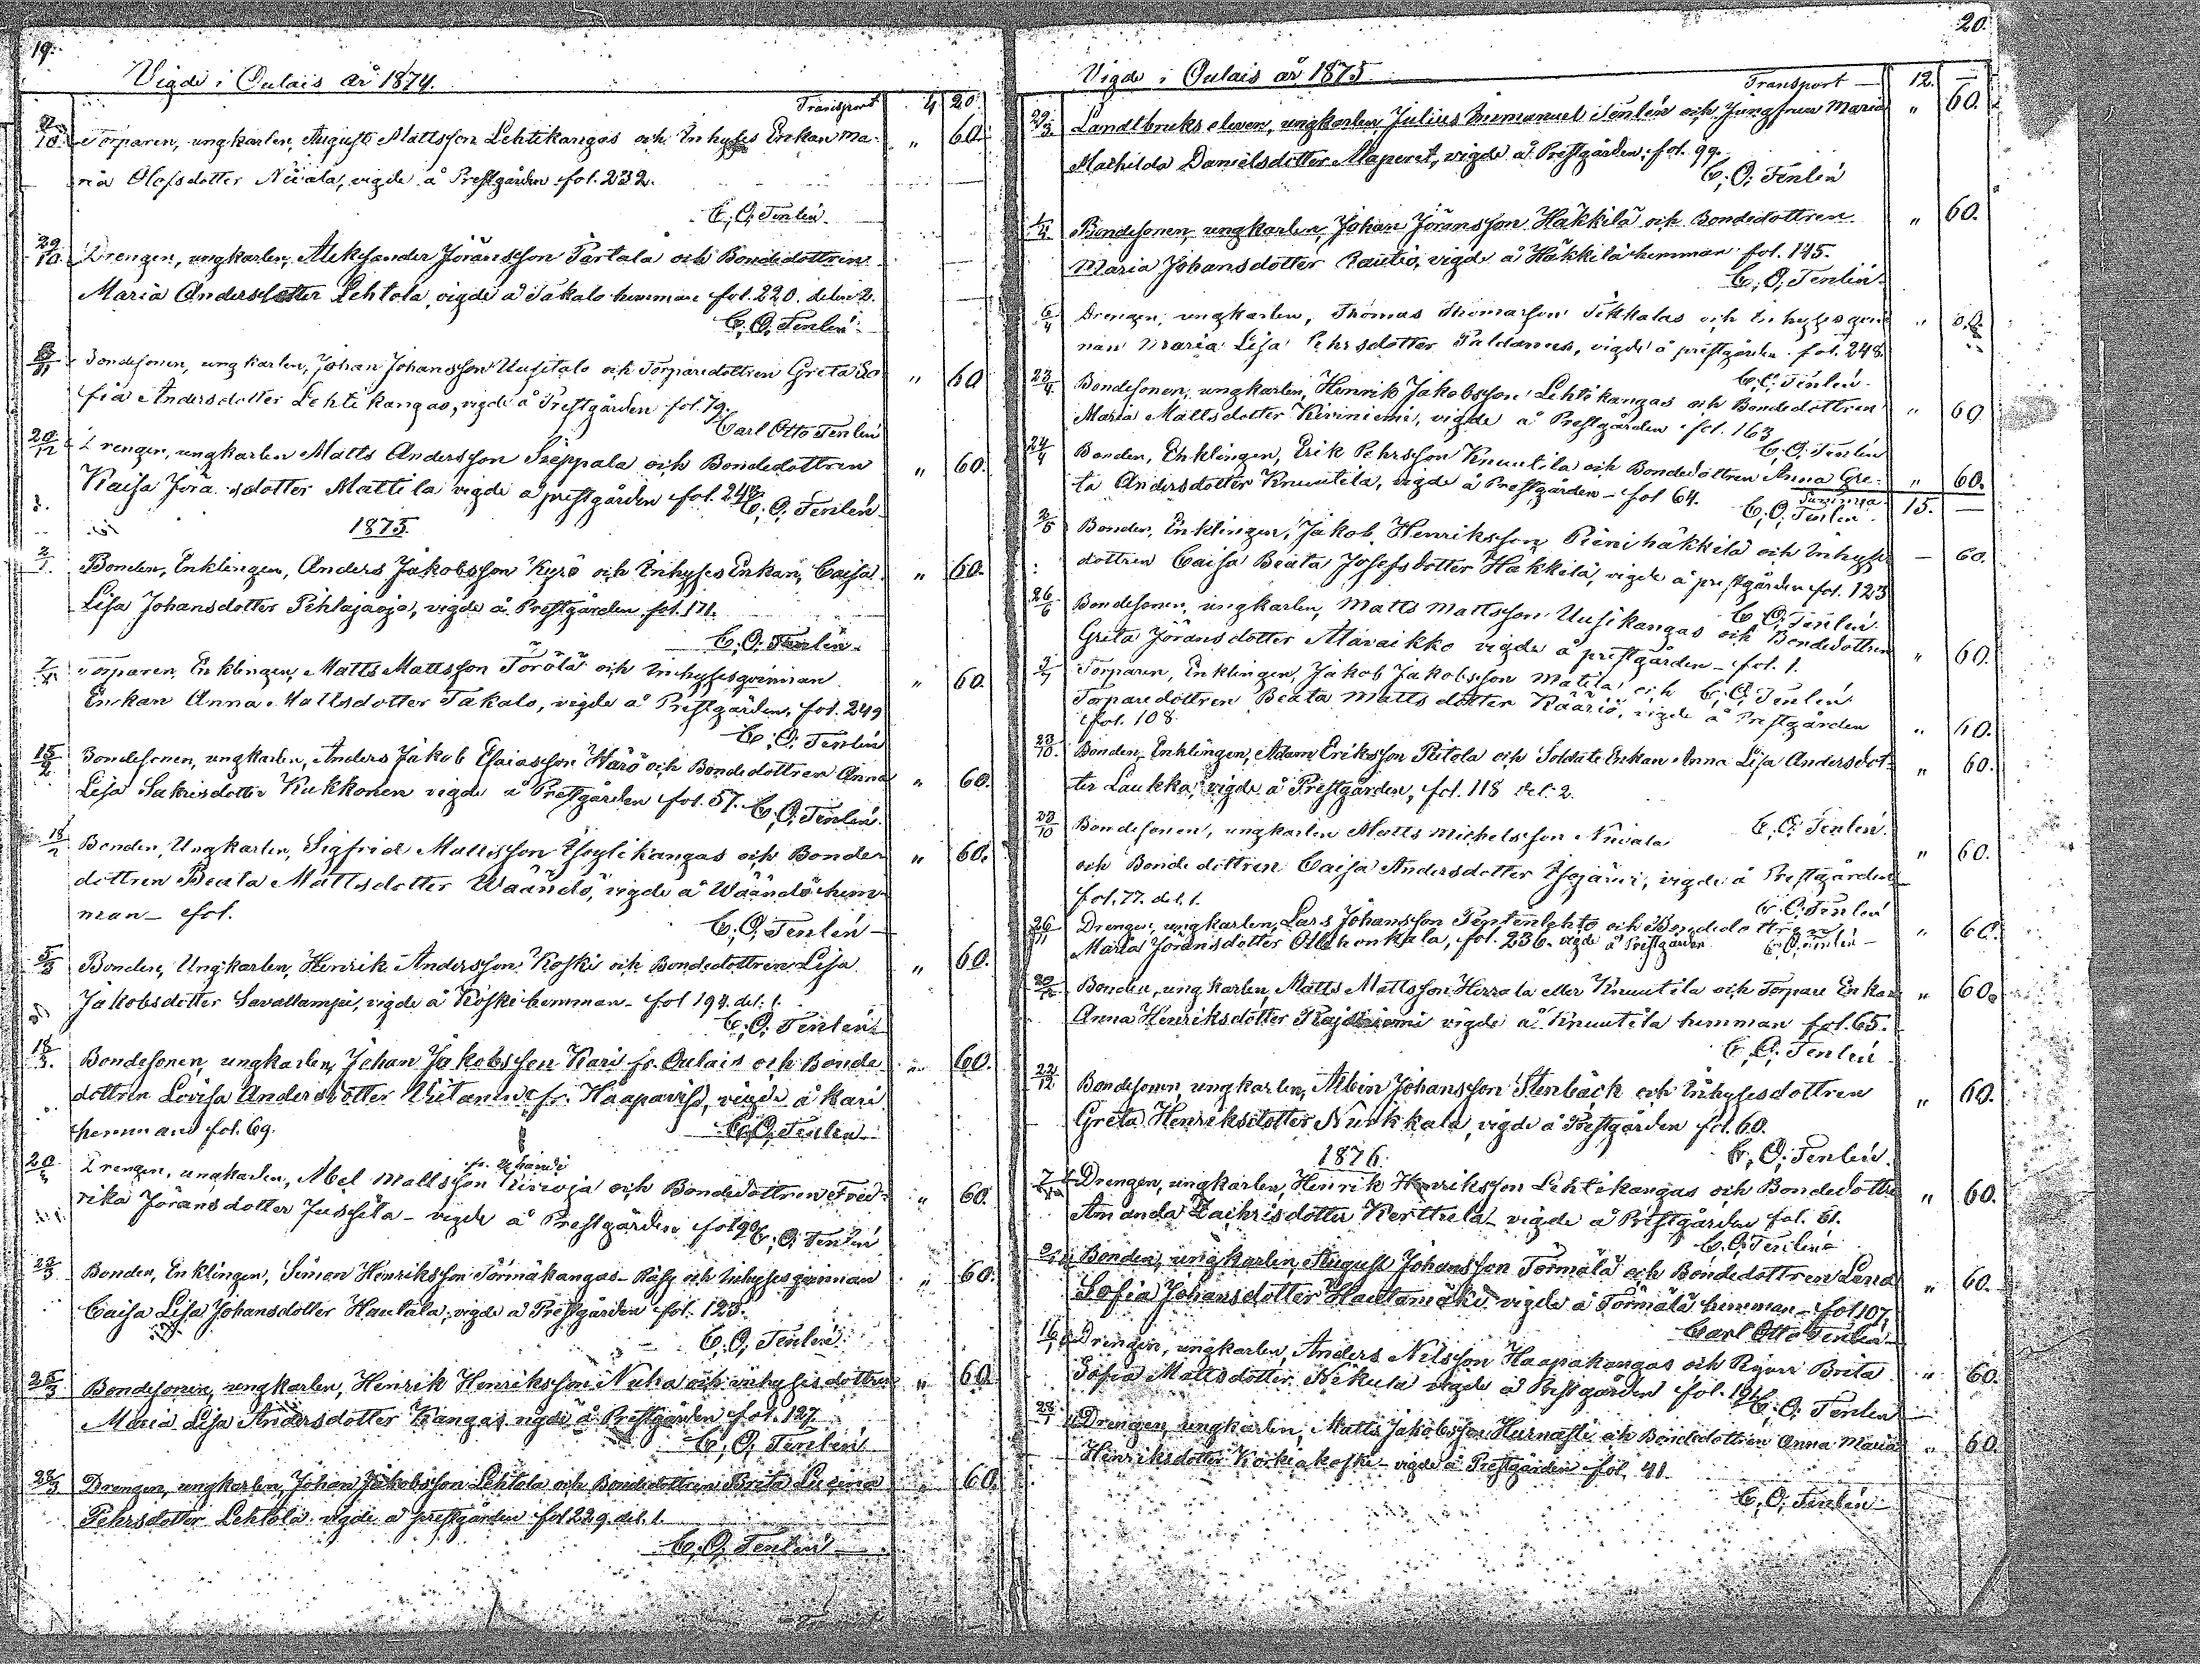 19.
Vigde i Oulais år 1874.
Transport 4 20.
Torparen, ungkarlen, August Mattsson Lehtikangas och Inhyses Enkan Ma- " 60.
ria Olofsdotter Niiala, vigde å Prestgården fol. 232.
C. O. Tenlén.
29/10. Drengen, ungkarlen, Aleksander Jöransson Partala och Bondedottren
Maria Andersdotter Lehtola, vigde å Takalo hemman fol. 220. delen 2.
C. O. Tenlén.
Bondesonen, ungkarlen, Johan Johansson Uusitalo och Torparedottren Greta So- " 60
fia Andersdotter Lehtikangas, vigde å Prestgården fol. 79.
Carl Otto Tenlén
20/12 Drengen, ungkarlen Matts Andersson Seppala och Bondedottren " 60.
Kaisa Jöransdotter Mattila vigde å prestgården fol. 248
C. O. Tenlén
1875.
Bonden, Enklingen, Anders Jakobsson Kyrö och Inhyses Enkan, Caisa " 60.
Lisa Johansdotter Pihlajaoja, vigde å Prestgården fol. 171.
C. O. Tenlén.
Torparen, Enklingen, Matts Mattsson Törölä och Inhysesqvinnan " 60.
Enkan Anna Mattsdotter Takalo, vigde å Prestgården, fol. 249
C. O. Tenlén
15/2 Bondesonen, ungkarlen, Anders Jakob Esaiasson Härö och Bondedottren Anna " 60.
Lisa Sakrisdotter Kukkonen vigde å Prestgården fol. 57. C. O. Tenlén.
18/2 Bonden, Ungkarlen, Sigfrid Mattsson Isoylikangas och Bonde- " 60.
dottren Beata Mattsdotter Wäändö, vigde å Wäändö hem-
man – fol.
C. O. Tenlén
5/3 Bonden, Ungkarlen, Henrik Andersson Koski och Bondedottren Lisa " 60.
Jakobsdotter Savallampi, vigde å Koski hemman – fol 194. del. 1.
C. O. Tenlén
18/3. Bondesonen, ungkarlen, Johan Jakobsson Kari fr. Oulais och Bonde- " 60.
dottren Lovisa Andersdotter fr. Haapavesi, vigde å Kari
hemman fol. 69.
C. O. Tenlén
fr.
20/3 Drengen, ungkarlen, Abel Mattsson och Bondedottren Fred- " 60.
rika Jöransdotter Jussila – vigde å Prestgården fol 99
C. O. Tenlén
22/3 Bonden, Enklingen, Simon Henriksson Törmäkangas och Inhysesqvinnan " 60.
Caisa Lisa Johansdotter Hautala, vigde å Prestgården fol. 123.
C. O. Tenlén
25/3 Bondesonen, ungkarlen, Henrik Henriksson Niiha och inhysesdottren " 60.
Maria Lisa Andersdotter Kangas vigde å Prestgården fol. 127
C. O. Tenlén
28/3 Drengen, ungkarlen, Johan Jakobsson Lehtola och Bondedottren Brita Lucina " 60.
Pehrsdotter Lehtola vigde å prestgården fol. 229. del. 1.
C. O. Tenlén
20.
Vigde i Oulais år 1875
Transport – 12. –
29/3 Landtbruks eleven, ungkarlen, Julius Immanuel Tenlén och Jungfrun Maria " 60.
Mathilda Danielsdotter Maperet, vigde å Prestgården, fol. 99.
C. O. Tenlén
1/4 Bondesonen, ungkarlen, Johan Jöransson Häkkilä och Bondedottren " 60.
Maria Johansdotter Rautio, vigde å Häkkilä hemman fol. 145.
C. O. Tenlén.
6/4 Drengen, ungkarlen, Thomas Thomasson Tikkalas och Inhysesqvin- "
nan Maria Lisa Pehrsdotter Paldanus, vigde å prestgården fol. 248
C. O. Tenlén.
23/4 Bondesonen, ungkarlen, Henrik Jakobsson Lehtikangas och Bondedottren " 60
Maria Mattsdotter Kiviniemi, vigde å Prestgården fol. 163
C. O. Tenlén
24/4 Bonden, Enklingen, Erik Pehrsson Knuutila och Bondedottren Anna Gre- " 60.
ta Andersdotter Knuutila, vigde å Prestgården – fol 64.
Summa 15. –
C. O. Tenlén.
2/5 Bonden, Enklingen, Jakob Henriksson Pienihäkkilä och Inhyses – 60.
dottren Caisa Beata Josefsdotter Häkkilä, vigde å prestgården fol. 123
C. O. Tenlén.
26/6 Bondesonen, ungkarlen, Matts Mattsson Uusikangas och Bondedottren " 60.
Greta Jöransdotter Alavaikko vigde å prestgården – fol. 1.
C. O. Tenlén
Torparen, Enklingen, Jakob Jakobsson Matila och
Torparedottren Beata Mattsdotter Kääriö, vigde å Prestgården " 60.
fol. 108
23/10. Bonden, Enklingen, Adam Eriksson Pitola och Soldats Enkan Anna Lisa Andersdot- " 60.
ter Laukka, vigde å Prestgården, fol. 118 del. 2.
C. O. Tenlén.
23/10 Bondesonen, ungkarlen Matts Michelsson Niivala " 60.
och Bondedottren Caisa Andersdotter Isojärvi, vigde å Prestgården
fol. 77. del. 1.
C. O. Tenlén
26/11 Drengen, ungkarlen, Lars Johansson Tentenlehto och Bondedottren " 60.
Maria Jöransdotter Ollihonkala, fol. 236. vigde å Prestgården C. O. Tenlén –
Bonden, ungkarlen, Matts Mattsson Hirrola eller Knuutila och Torpare Enkan " 60.
Anna Henriksdotter Kajaniemi vigde å Knuutila hemman fol. 65.
C. O. Tenlén
22/12 Bondesonen, ungkarlen, Albin Johansson Stenbäck och Inhysesdottren " 60.
Greta Henriksdotter Nurkkala, vigde å Prestgården fol. 60.
C. O. Tenlén.
1876.
Drengen, ungkarlen, Henrik Henriksson Lehtikangas och Bondedottr " 60.
Amanda Zachrisdotter Kerttula – vigde å Prestgården fol. 61.
C. O. Tenlén
Bonden, ungkarlen, August Johansson Törmälä och Bondedottren Lena " 60.
Sofia Johansdotter Hautamäki vigde å Törmälä hemman – fol 107,
Carl Otto Tenlén
16/1 Drengen, ungkarlen, Anders Nilsson Haapakangas och Brita " 60.
Sofia Mattsdotter Nikula vigde å Prestgården fol. 191
C. O. Tenlén
23/1 Drengen, ungkarlen, Matts Jakobsson Hurnasti och Bondedottren Anna Maria " 60
Henriksdotter Korkiakoski – vigde å Prestgården fol. 41.
C. O. Tenlén